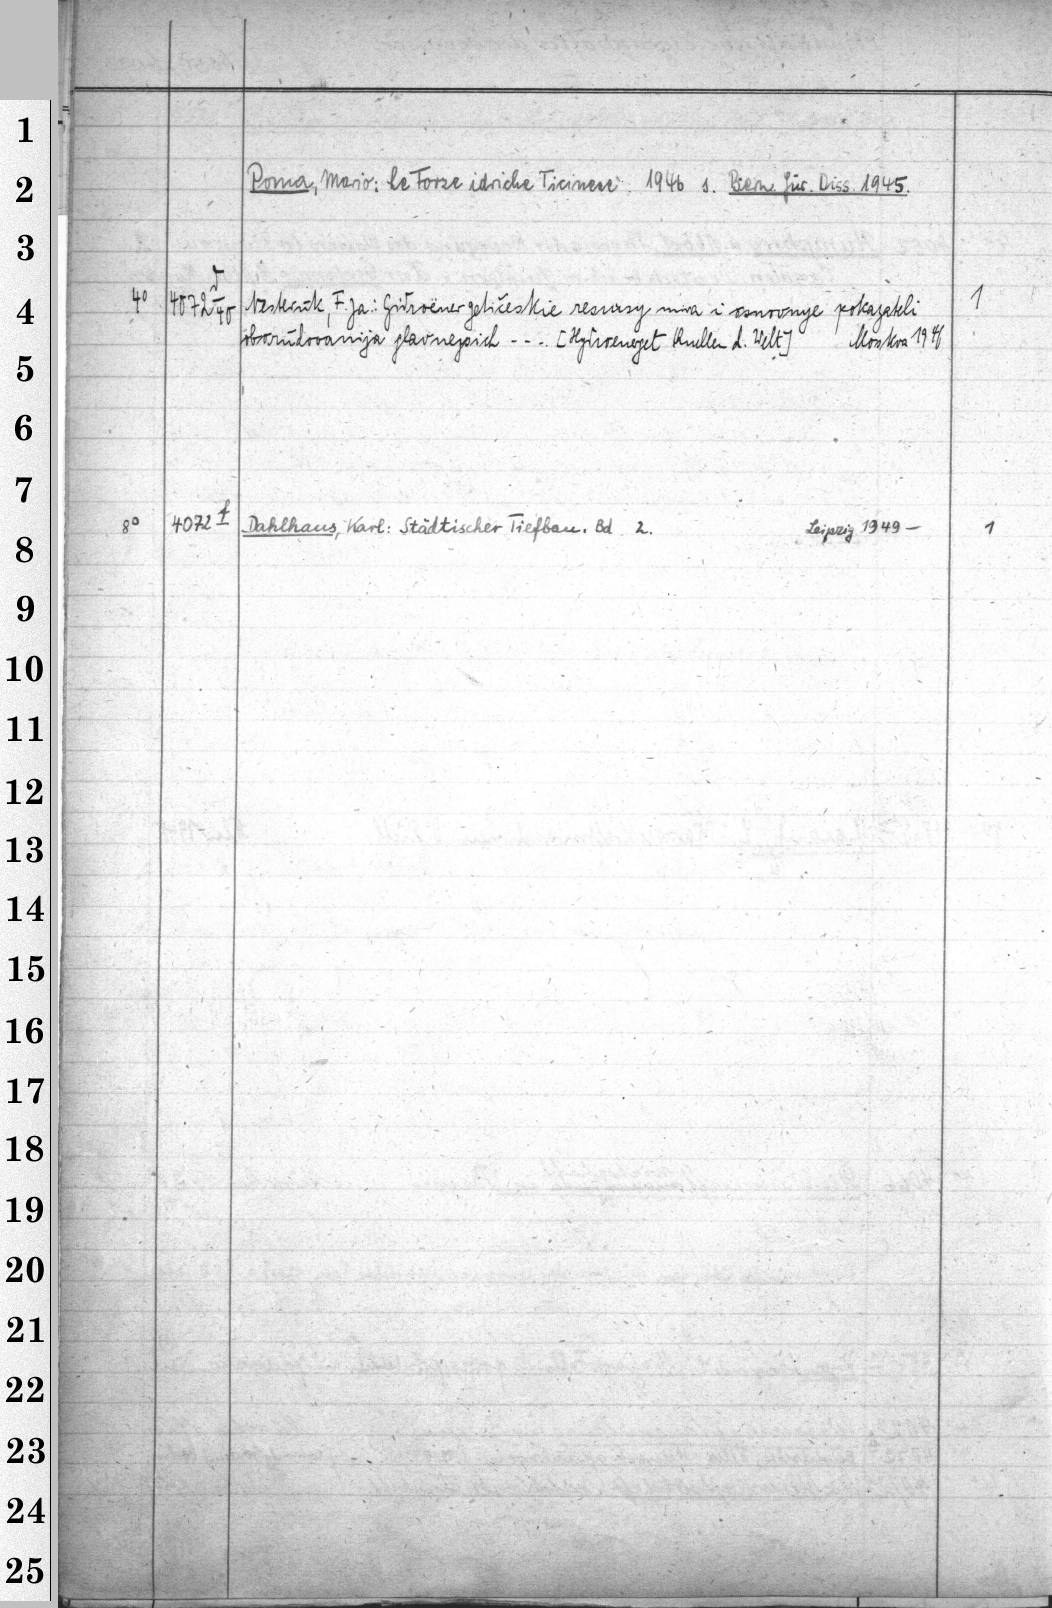 1
2
Roma, Mario: le Forze idriche Ticinese. 1946 s. Bern. Jur. Diss. 1945.
3
4
4° 4072 F. Ja.: Gidroėnergetičeskie resursy mira i osnovnye pokazateli 1
oborudovanija glavnejsich - - - . [Hydroenerget Quellen d. Welt] Moskva 1946
5
6
7
8° 4072 f Dahlhaus, Karl: Städtischer Tiefbau. Bd 2. Leipzig 1949 — 1
8
9
10
11
12
13
14
15
16
17
18
19
20
21
22
23
24
25